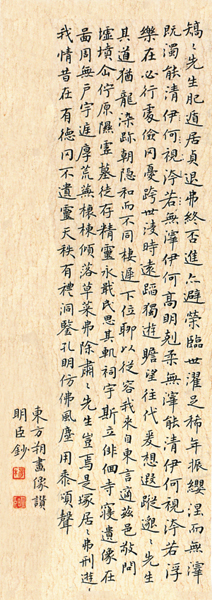 矯〻先生肥遁居貞退弗終否進亦避榮臨世濯足希古振纓涅而無滓
既濁能清無滓伊何高明克柔能清伊何視汙若浮
樂在必行處儉罔憂跨世淩時遠蹈獨遊瞻望往代爰想遐蹤邈〻先生
其道猶龍染跡朝隱和而不同棲遲下位聊以從容我來自東言適茲邑敬問
墟墳企佇原隰墟墓徒存精靈永戢民思其軌祠宇斯立徘徊寺寢遺像在
圖周旋祠宇庭序荒蕪榱棟傾落草萊弗除肅〻先生豈焉是居是居弗刑遊〻
我情昔在有德罔不遺靈天秩有禮神監孔明彷彿風塵用垂頌聲
東方朔畫像讚
明臣鈔